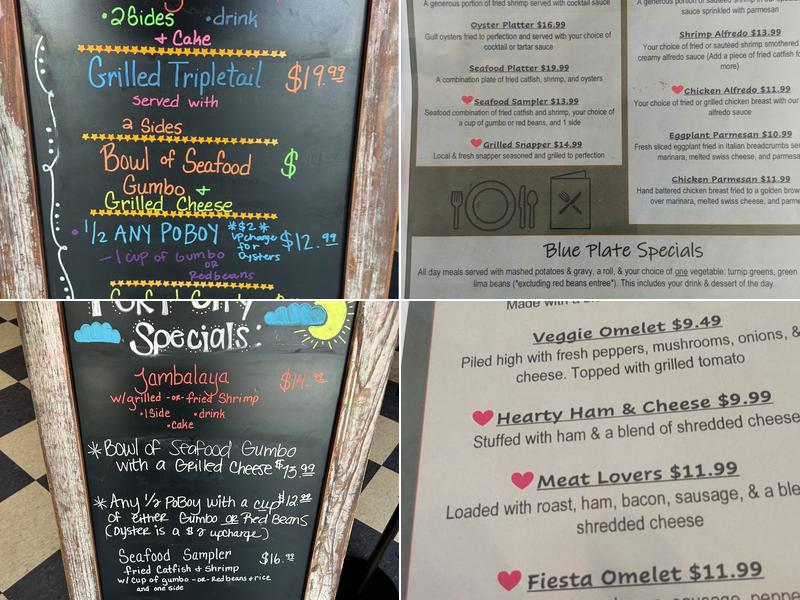 •2Sides •drink
+ Cake
Grilled Tripletail $19.99
Served with
2 Sides
Bowl of Seafood $
Gumbo +
Grilled Cheese
1/2 ANY POBOY *$2* upcharge for oysters $12.99
- 1 cup of Gumbo
OR
Redbeans
A generous portion of fried shrimp served with cocktail sauce
Oyster Platter $16.99
Gulf oysters fried to perfection and served with your choice of
cocktail or tartar sauce
Seafood Platter $19.99
A combination plate of fried catfish, shrimp, and oysters
Seafood Sampler $13.99
Seafood combination of fried catfish and shrimp, your choice of
a cup of gumbo or red beans, and 1 side
Grilled Snapper $14.99
Local & fresh snapper seasoned and grilled to perfection
sauce sprinkled with parmesan
Shrimp Alfredo $13.99
Your choice of fried or sautéed shrimp smothered
creamy alfredo sauce (Add a piece of fried catfish
more)
Chicken Alfredo $11.99
Your choice of fried or grilled chicken breast with our
alfredo sauce
Eggplant Parmesan $10.99
Fresh sliced eggplant fried in Italian breadcrumbs
marinara, melted swiss cheese, and
Chicken Parmesan $11.99
Hand battered chicken breast fried to a golden
over marinara, melted swiss cheese, and
Blue Plate Specials
All day meals served with mashed potatoes & gravy, a roll, & your choice of one vegetable: turnip greens, green
lima beans (*excluding red beans entree*). This includes your drink & dessert of the day.
Port City
Specials:
Jambalaya $14.99
w/grilled -or- fried Shrimp
•1side •drink
•cake
*Bowl of Seafood Gumbo
with a Grilled Cheese $13.99
*Any 1/2 PoBoy with a cup $12.99
of either Gumbo or Red Beans
(oyster is a $2 upcharge)
Seafood Sampler $16.99
fried Catfish & Shrimp
w/ Cup of gumbo -or- Redbeans & rice
and one side
Made with
Veggie Omelet $9.49
Piled high with fresh peppers, mushrooms, onions, &
cheese. Topped with grilled tomato
Hearty Ham & Cheese $9.99
Stuffed with ham & a blend of shredded cheese
Meat Lovers $11.99
Loaded with roast, ham, bacon, sausage, & a
shredded cheese
Fiesta Omelet $11.99